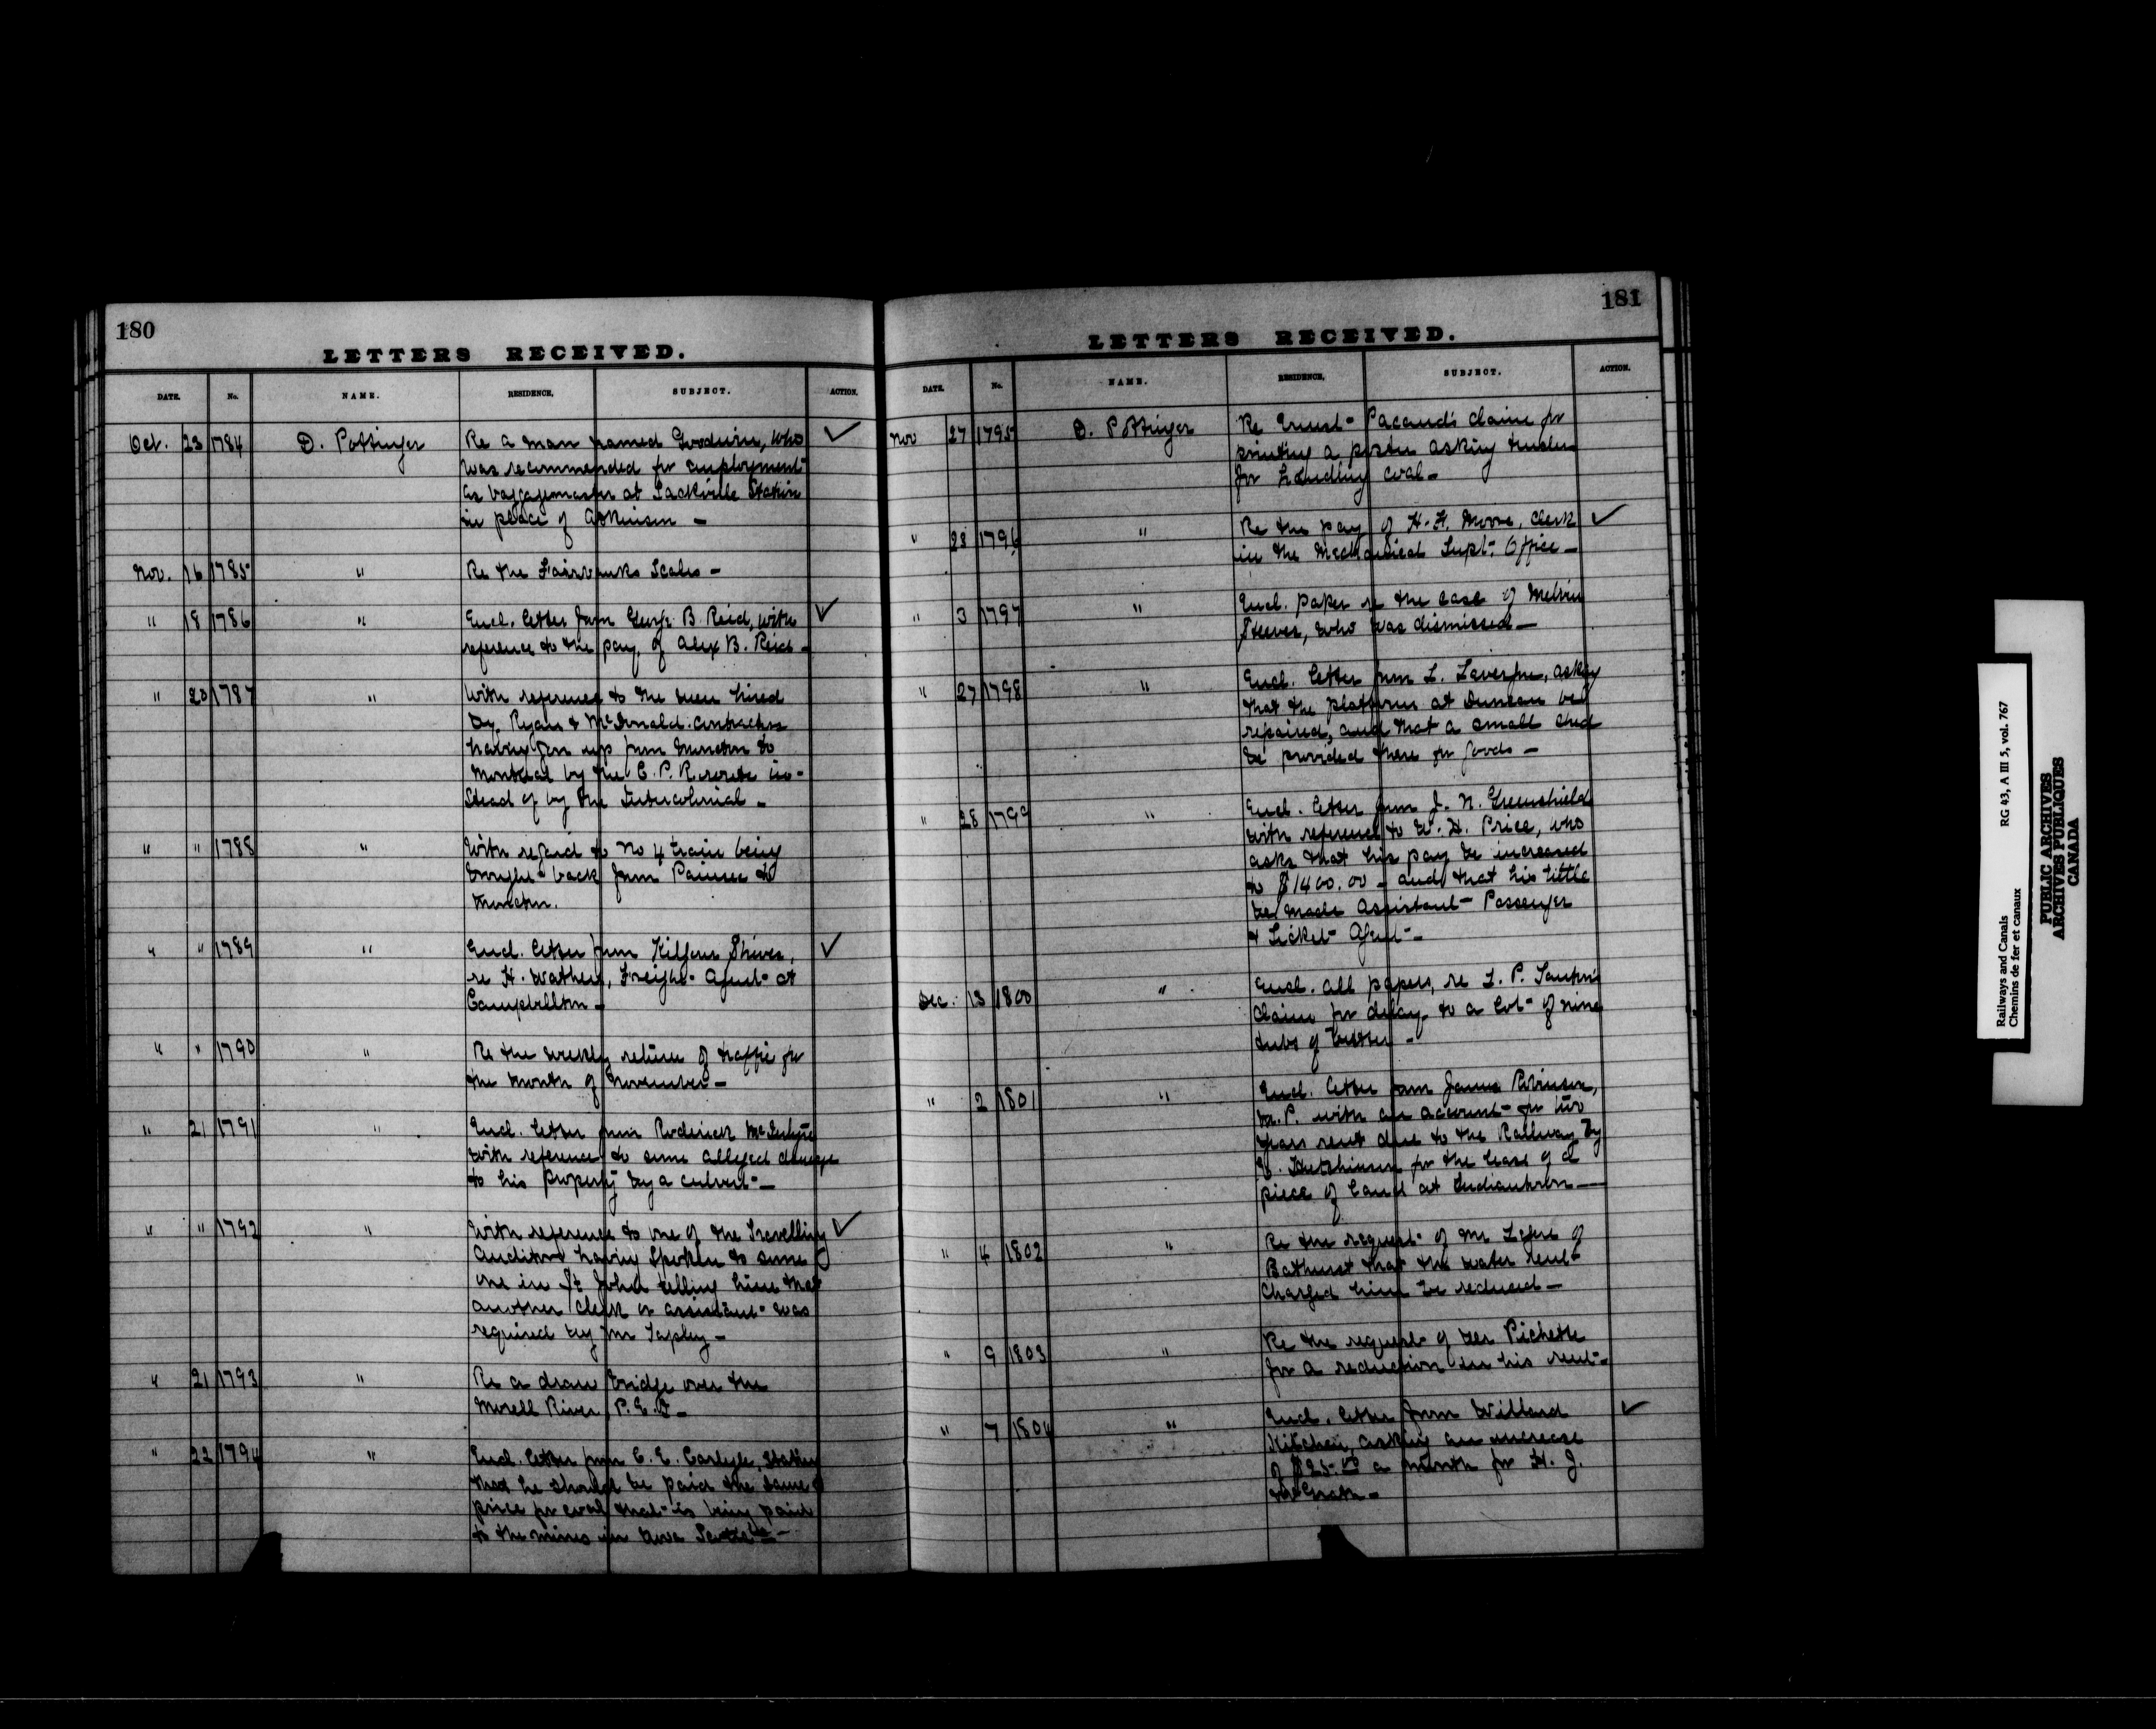 180
LETTERS RECEIVED.
DATE. No. NAME. RESIDENCE. SUBJECT. ACTION.
Oct. 23 1784 D. Pottinger Re a man named Goodwin, who ✓
was recommended for employment
as baggagemaster at Sackville Station
in place of Atkinson —
Nov. 16 1785 " Re the Fairbanks Scales —
" 18 1786 " Encl. letter from George B. Reid, with ✓
reference to the pay of Alex B. Reid —
" 20 1787 " With reference to the men hired
by Ryan & McDonald contractors
having gone up from Moncton to
Montreal by the C. P. R. route in-
stead of by the Intercolonial —
" " 1788 " With regard to No 4 train being
brought back from Painsec to
Moncton.
" " 1789 " Encl. letter from Kilgour Shives, ✓
re H. Wathen, Freight Agent at
Campbellton —
" " 1790 " Re the weekly return of traffic for
the month of November —
" 21 1791 " Encl. letter from Roderick McIntyre
with reference to some alleged damage
to his property by a culvert —
" " 1792 " With reference to one of the Travelling ✓
Auditors having spoken to some
one in St John telling him that
another clerk or assistant was
required by Mr Tapley —
" 21 1793 " Re a draw bridge over the
Morell River, P.E.I —
" 22 1794 " Encl. letter from C. E. Carlyle, stating
that he should be paid the same
price for coal that is being paid
to the mines in Nova Scotia —
181
LETTERS RECEIVED.
DATE. No. NAME. RESIDENCE. SUBJECT. ACTION.
Nov 27 1795 D. Pottinger Re Ernest Pacaud's claim for
printing a poster asking tenders
for handling coal —
" 28 1796 " Re the pay of H. F. Moore, clerk ✓
in the Mechanical Supt. Office —
" 3 1797 " Encl. paper re the case of Melvin
Steeves, who was dismissed —
" 27 1798 " Encl. letter from L. Lavergne, asking
that the platform at Duncan be
repaired, and that a small shed
be provided there for goods —
" 28 1799 " Encl. letter from J. N. Greenshield
with reference to W. H. Price, who
asks that his pay be increased
to $1400.00 — and that his tittle
be made Assistant Passenger
& Ticket Agent —
Dec. 13 1800 " Encl. all papers, re L. P.
claim for delay to a lot of nine
tubs of butter —
" 2 1801 " Encl. letter from James Robinson,
M.P. with an account for two
years rent due to the Railway by
Hutchinson for the lease of a
piece of land at Indiantown —
" 4 1802 " Re the request of Mr of
Bathurst that the water rent
charged him be reduced —
" 9 1803 " Re the request of Pichette
for a reduction in his rent —
" 7 1804 " Encl. letter from Willard ✓
Kitchen, asking an increase
of $25.00 a month for H. J.
McGrath —
Railways and Canals
Chemins de fer et canaux
RG 43, A III 5, vol. 767
PUBLIC ARCHIVES
ARCHIVES PUBLIQUES
CANADA